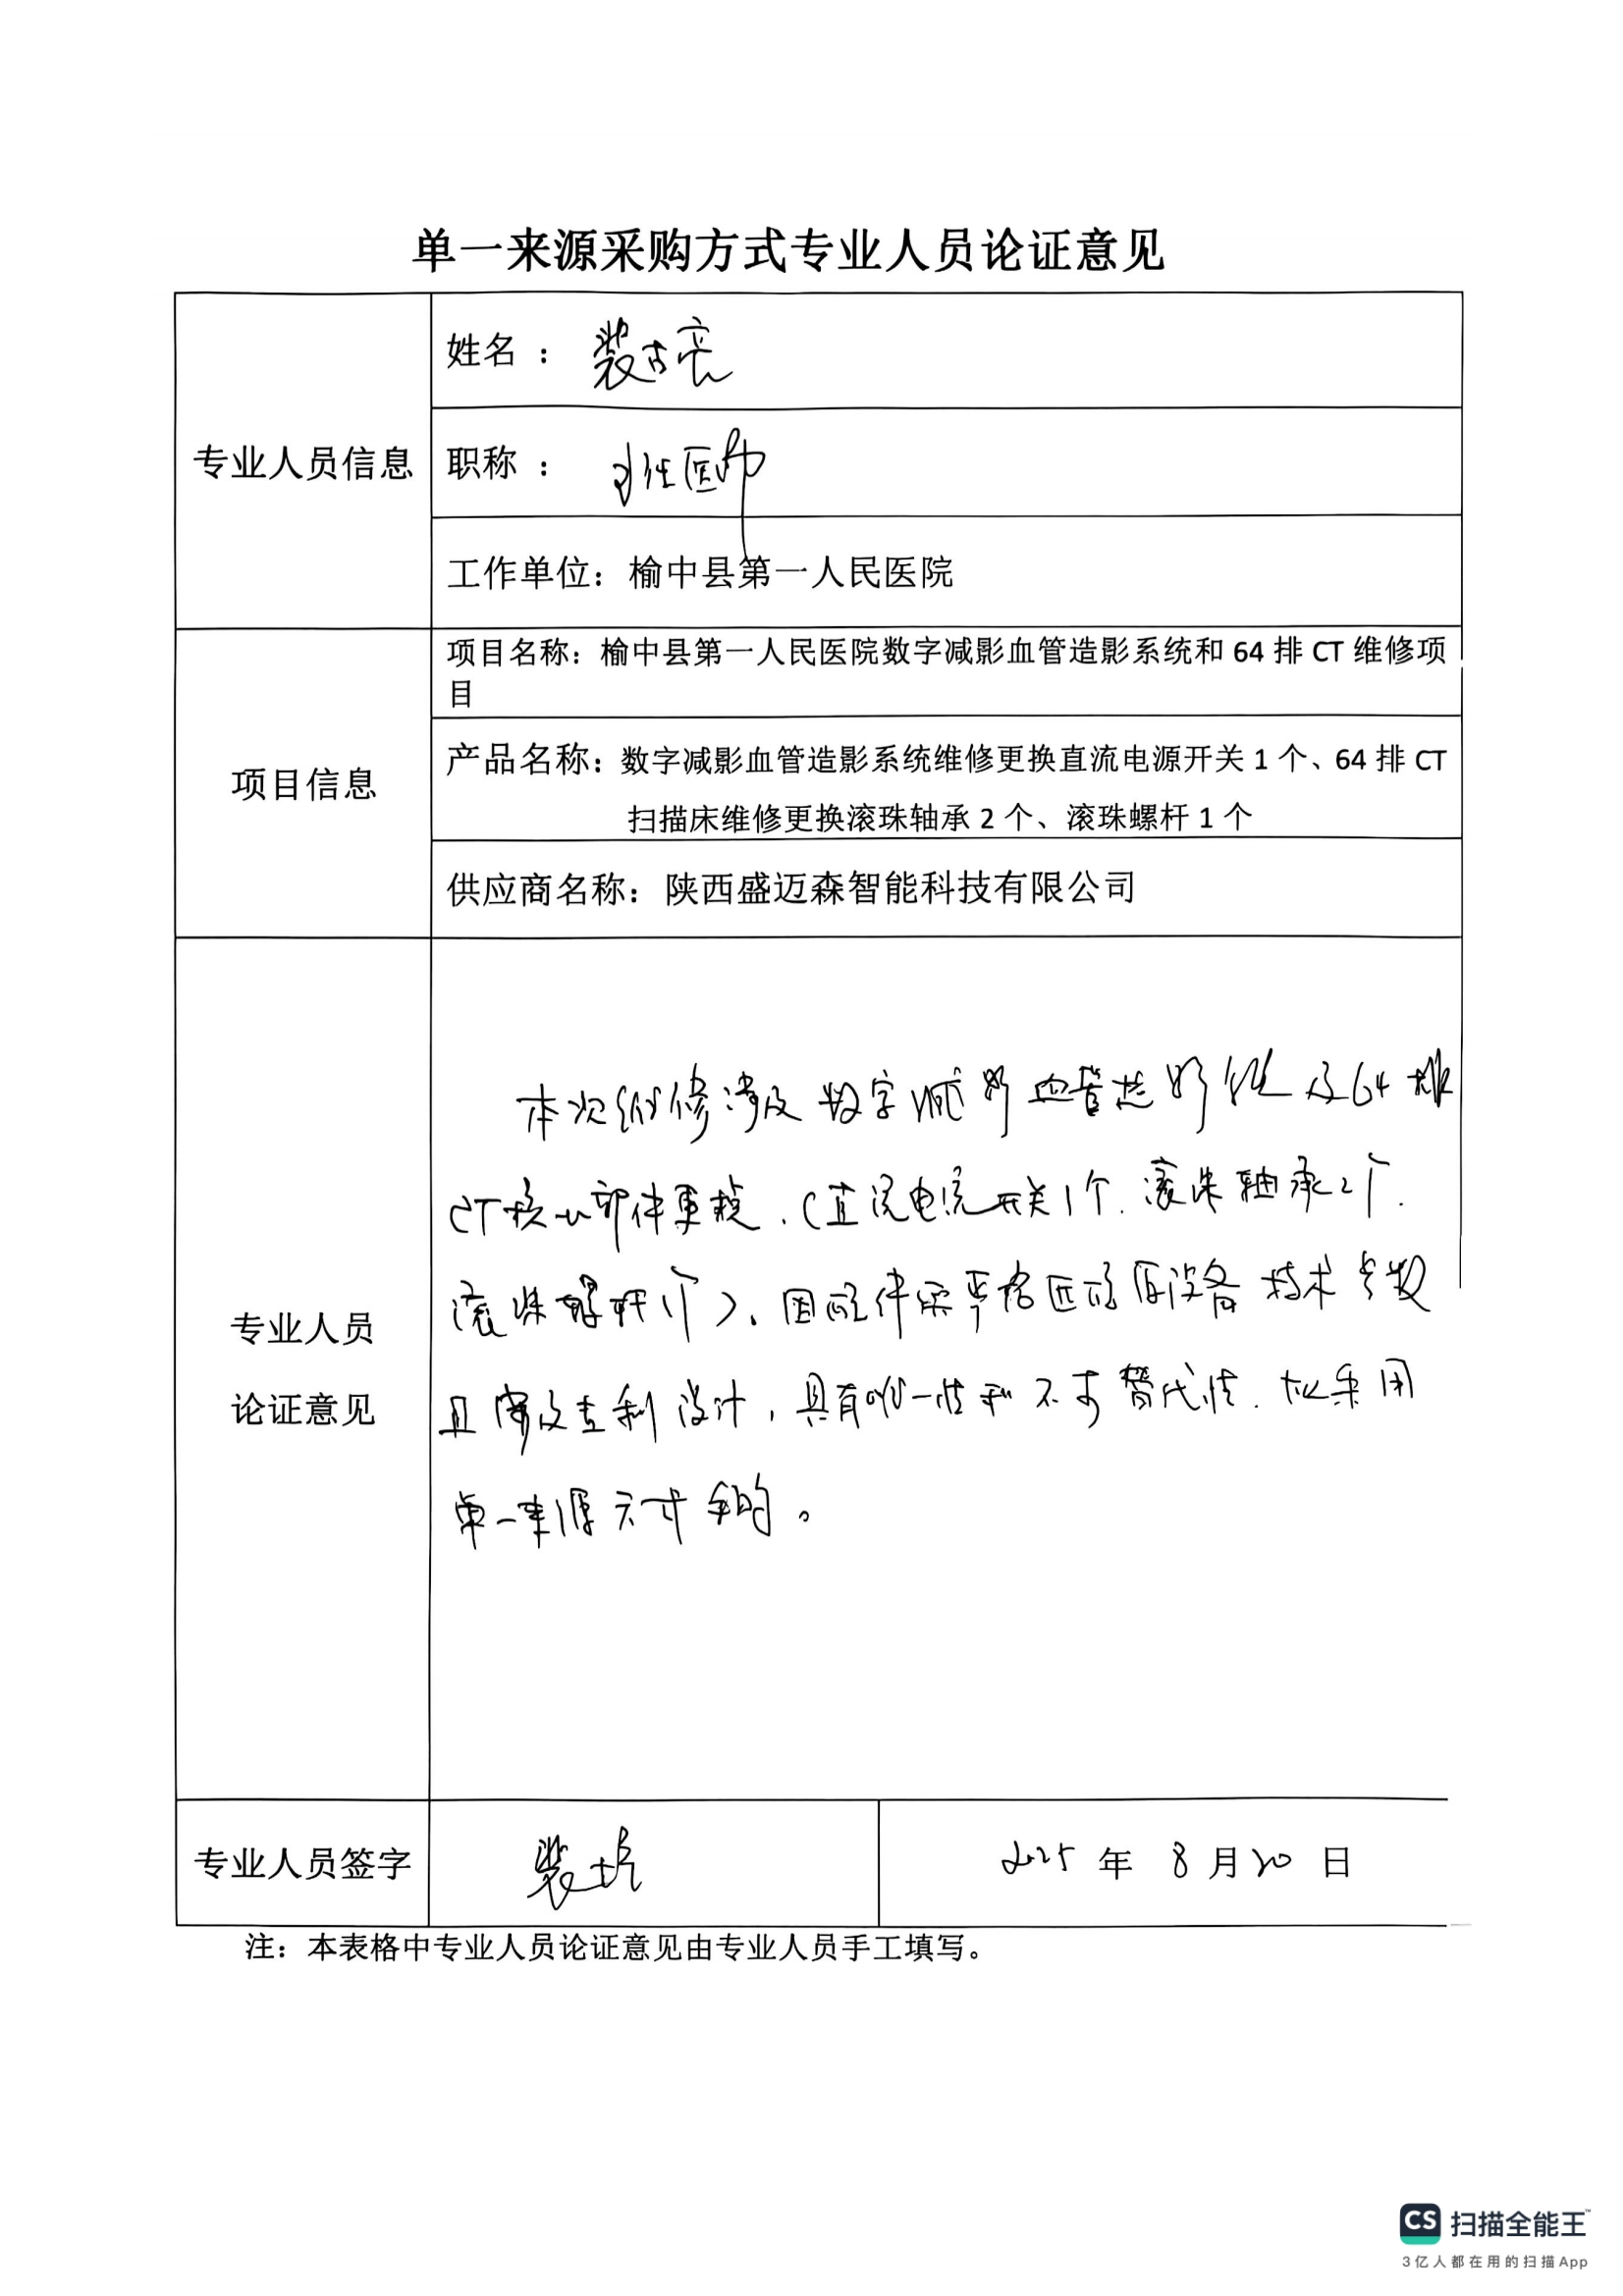 单一来源采购方式专业人员论证意见
专业人员信息
姓名 ：
职称 ： 主任医师
工作单位：榆中县第一人民医院
项目信息
项目名称：榆中县第一人民医院数字减影血管造影系统和 64 排 CT 维修项
目
产品名称：数字减影血管造影系统维修更换直流电源开关 1 个、64 排 CT
扫描床维修更换滚珠轴承 2 个、滚珠螺杆 1 个
供应商名称：陕西盛迈森智能科技有限公司
专业人员
论证意见
本次维修涉及数字减影血管造影系统及64排
CT核心部件更换，(直流电源开关1个. 滚珠轴承2个.
滚珠螺杆1个)、因配件需严格匹配原设备技术参数
且涉及专利设计，具有唯一性和不可替代性. 拟采用
单一来源方式采购。
专业人员签字
2025 年 8 月 20 日
注：本表格中专业人员论证意见由专业人员手工填写。
CS 扫描全能王™
3亿人都在用的扫描App